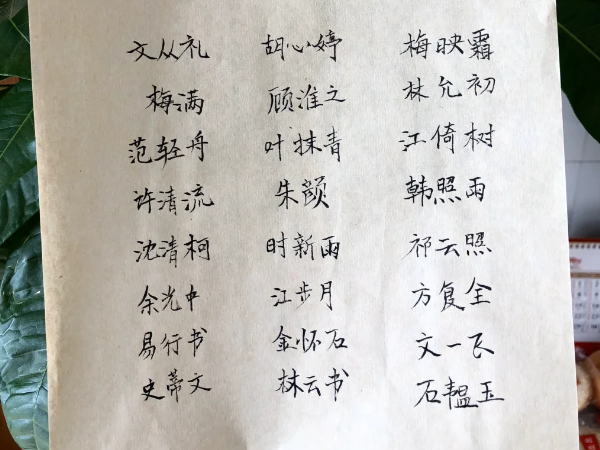 文从礼 胡心婷 梅映霜
梅满 顾淮之 林允初
范轻舟 叶抹青 江倚树
许清流 朱颜 韩照雨
沈清柯 时新雨 祁云照
余光中 江步月 方复全
易行书 金怀石 文一飞
史蒂文 林云书 石韫玉